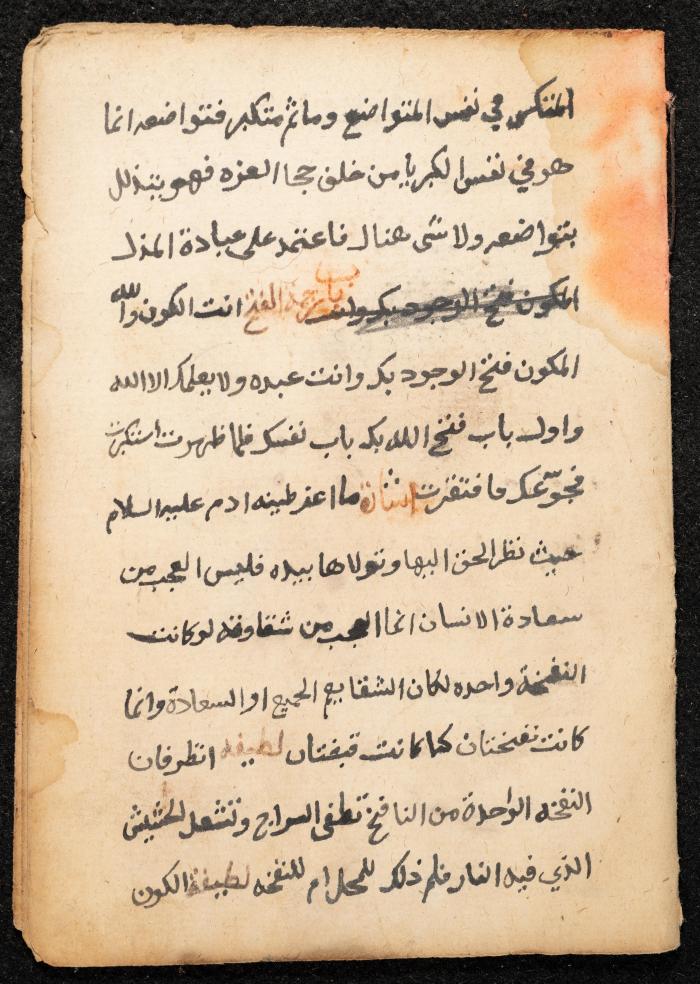 المتكبر في نفس المتواضع وما ثم متكبر فتواضعه انما
هو في نفس الكبريا من خلف حجا العزه فهو يتذلل
بتواضعه ولا شى هناك فاعتمد على عبادة المذل
المكون فتح الوجود بك وانت باب ترجمة الفتح انت الكون والله
المكون فتح الوجود بك وانت عبده ولا يعلمك الا الله
واول باب فتح الله بك باب نفسك فلما ظهرت استكبرت
فجوّعك فافتقرت اشارة ما اعز طينه ادم عليه السلام
حيث نظر الحق اليها وتولاها بيده فليس العجب من
سعادة الانسان انما العجب من شقاوته لو كانت
النفخة واحده لكان الشقا يعم الجميع او السعادة وانما
كانت نفختان كما كانت قبضتان لطيفه انظر فان
النفخه الواحدة من النافخ تطفى السراج وتشعل الحشيش
الذي فيه النار فلم ذلك للمحل ام للنفخه لطيفة الكون